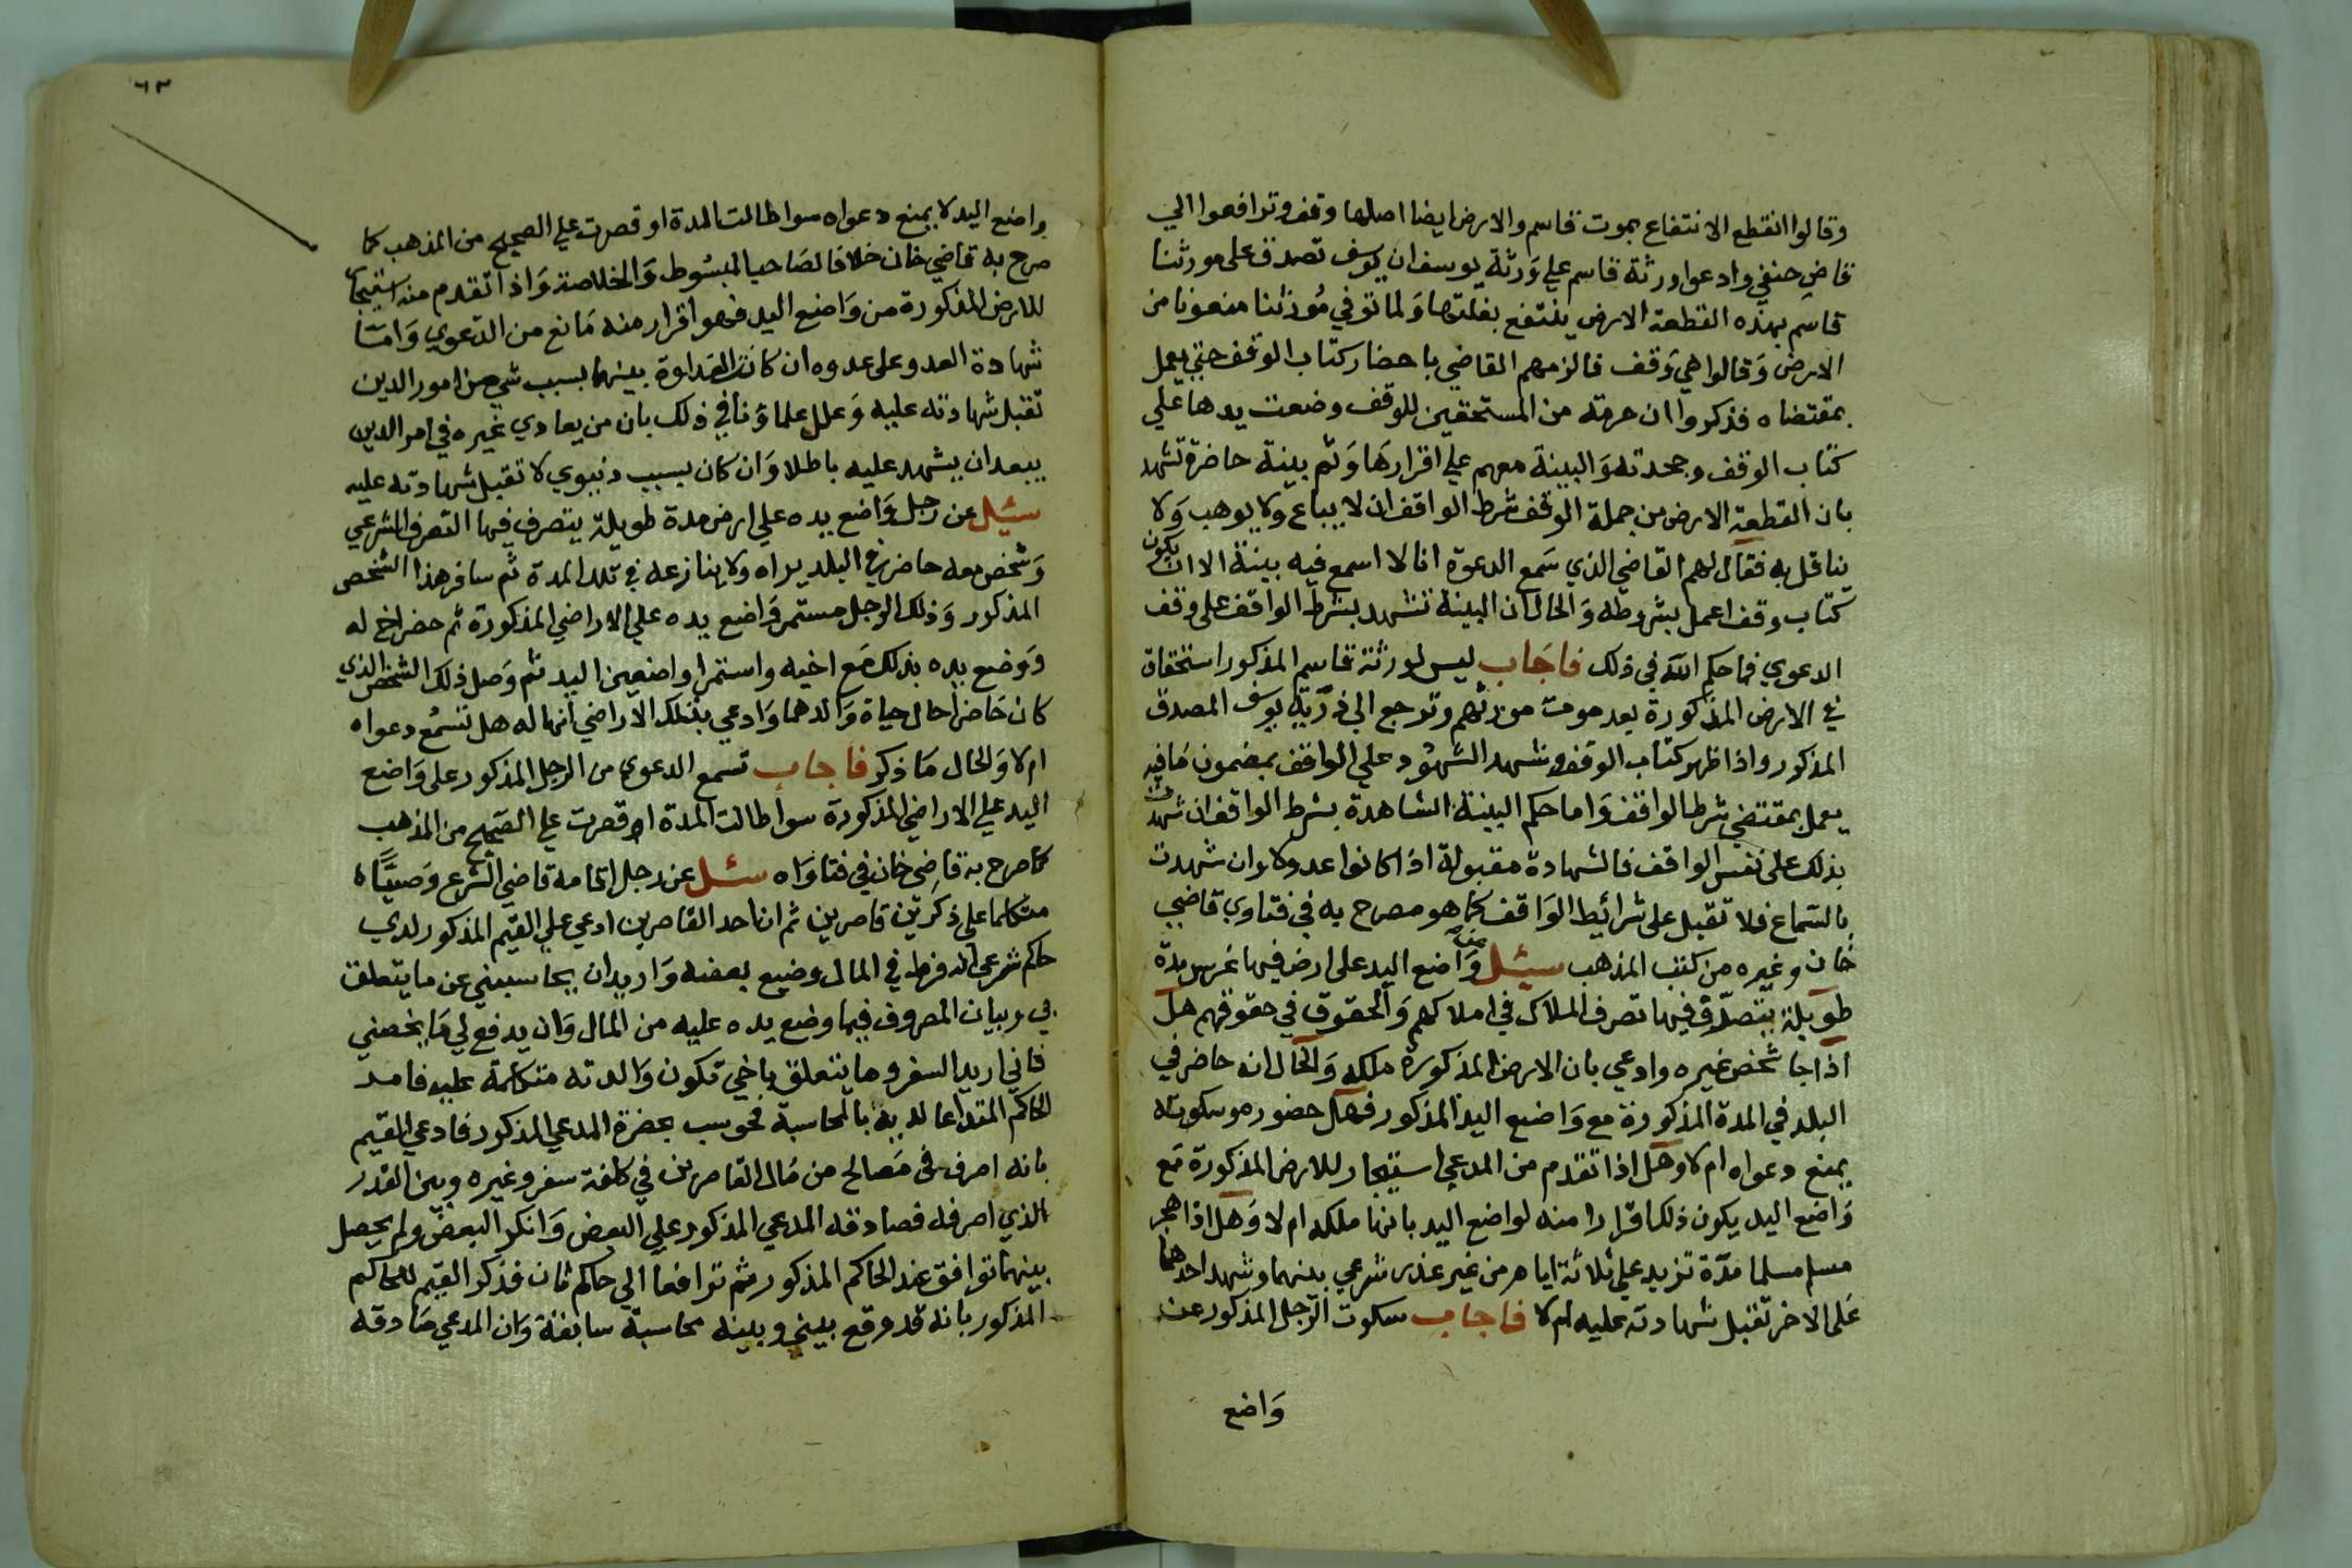 وقالوا انقطع الانتفاع بموت قاسم والارض ايضا اصلها وقف وترافعوا الي
قاضٍ حنفي وادعوا ورثة قاسم علي وَرثة يوسف ان يوسف تصدق على مورثنا
قاسم بهذه القطعة الارض ينتفع بغلتها وَلما توفي مُورثنا منعونا من
الارض وَقالوا هي وَقف فالزمهم القاضي باحضار كتاب الوقف حتي يعمل
بمقتضاه فذكروا ان حرمة من المستحقين للوقف وضعت يدها علي
كتاب الوقف وجحدته وَالبينة معهم علي اقرارهَا وَثم بينة حاضرة تشهد
بان القطعة الارض من جملة الوقف شرط الواقف ان لا يباع ولا يوهب وَلا
يناقل به فقال لهم القاضي الذي سَمع الدعوة انا لا اسمع فيه بينة الا ان يكون
كتاب وقف اعمل بشروطه وَالحال ان البينة تشهد بشرط الواقف على وقف
الدعوي فما حكم الله في ذلك فاجَاب ليس لورثة قاسم المذكور استحقاق
في الارض المذكورة بعد موت مورثهم وترجع الي ذرّية يوسف المصدق
المذكور واذا ظهر كتاب الوقف وشهد الشهُود علي الواقف بمضمون مَافيه
يعمل بمقتضي شرط الواقف وَاما حكم البينة الشاهدة بشرط الواقف ان شهدت
بذلك على نفس الواقف فالشهادة مقبولة اذا كانوا عدولا وان شهدت
بالسّماع فلا تقبل على شرائيط الوَاقف كما هو مصرح به في فتاوي قاضي
خان وغيره من كتب المذهب سئل عن وَاضع اليد على ارض فيها غرس مدة
طويلة يتصرّف فيها تصرف الملاك في املاكهم وَالحقوق في حقوقهم هل
اذا جا شخص غيره وادعي بان الارض المذكورة ملكه وَالحال انه حاضر في
البلد في المدة المذكورة مع وَاضع اليد المذكور فهل حضوره وسكوته
يمنع دعواه ام لا وهل اذا تقدم من المدعي استيجار للارض المذكورة مَع
وَاضع اليد يكون ذلك اقرارا منه لواضع اليد بانها ملكه ام لا وَهل اذا هجر
مسلم مسلما مدّة تزيد علي ثلاثة ايام من غير عذر شرعي بينهما وشهد احدهما
عَلى الاخر تقبل شهادته عليه ام لا فاجاب سكوت الرّجل المذكور عن
وَاضع
٦٢
واضع اليد لا يمنع دعواه سوا طالت المدة او قصرت علي الصحيح من المذهب كما
صرح به قاضي خان خلافا لصَاحب المبسُوط وَالخلاصة وَاذا تقدم منه استيجار
للارض المذكورة من وَاضع اليد فهو اقرار منه مَانع من الدّعوي وَامّا
شهادة العدو على عدوه ان كانت العَداوة بينهما بسبب شي من امور الدين
تقبل شهادته عليه وَعلل علماؤنا في ذلك بان من يعادي غيره في امر الدين
يبعد ان يشهد عليه باطلا وَان كان بسبب دنيوي لا تقبل شهادته عليه
سئيل عن رجل وَاضع يده علي ارض مدة طويلة يتصرف فيها التصرف الشرعي
وَشخص معه حاضر في البلد يراه ولا ينازعه في تلك المدة ثم سافر هذا الشخص
المذكور وَذلك الرجل مستمر وَاضع يده علي الاراضي المذكورة ثم حضر اخ له
وَوضع يده بذلك مَع اخيه واستمرا واضعين اليد ثم وَصل ذلك الشخص الذي
كان حَاضرا حال حياة وَالدهما وَادعي بتلك الاراضي انها له هل تسمُع دعواه
ام لا وَالحال مَا ذكر فاجاب تسمع الدعوي من الرجل المذكور على وَاضع
اليد علي الاراضي المذكورة سوا طالت المدة او قصرت علي الصّحيح من المذهب
كما صرح به قاضِي خان في فتاوَاه سئل عن رجل اقامه قاضي الشّرع وَصيّا
متكلما على ذكرين قاصرين ثم ان احد القاصرين ادعي علي القيم المذكور لدي
حاكم شرعي انه فرط في المال وضيع بعضه وَاريد ان يحاسبني عن ما يتعلق
بي وبيان المصروف فيما وضع يده عليه من المال وَان يدفع لي مَا يخصني
فاني اريد السفر وما يتعلق باخي تكون وَالدته متكلمة عليه فامر
الحاكم المتداعا لديه بالمحاسبة فحوسب بحضرة المدعي المذكور فادعي القيم
بانه اصرف في مَصالح من مَال القاصرين في كلفة سفر وغيره وبين القدر
الذي اصرفه فصادقه المدعي المذكور علي البعض وَانكر البعض ولم يحصل
بينهما توافق عند الحاكم المذكور ثم ترافعا الي حاكم ثان فذكر القيم للحاكم
المذكور بانه قد وقع بيني وبينه محاسبة سابقة وَان المدعي صَادقه